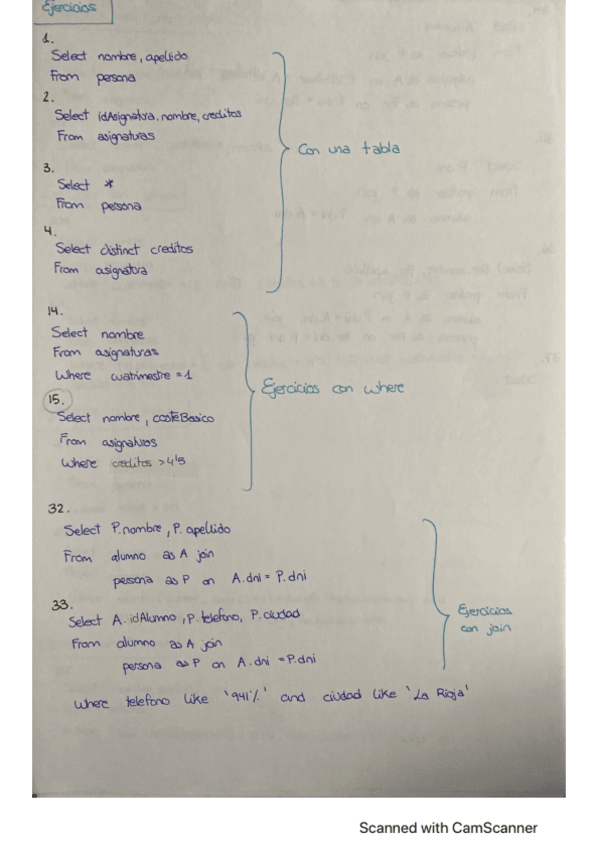 Ejercicios
1.
Select nombre, apellido
From persona
2.
Select idAsignatura, nombre, creditos
From asignaturas
3.
Select *
From persona
4.
Select distinct creditos
From asignatura
Con una tabla
14.
Select nombre
From asignaturas
Where cuatrimestre = 1
15.
Select nombre, costeBasico
From asignaturas
Where creditos > 4'5
Ejercicios con where
32.
Select P.nombre, P.apellido
From alumno as A join
persona as P on A.dni = P.dni
33.
Select A.idAlumno, P.telefono, P.ciudad
From alumno as A join
persona as P on A.dni = P.dni
Where telefono like '941%' and ciudad like 'La Rioja'
Ejercicios
con join
Scanned with CamScanner